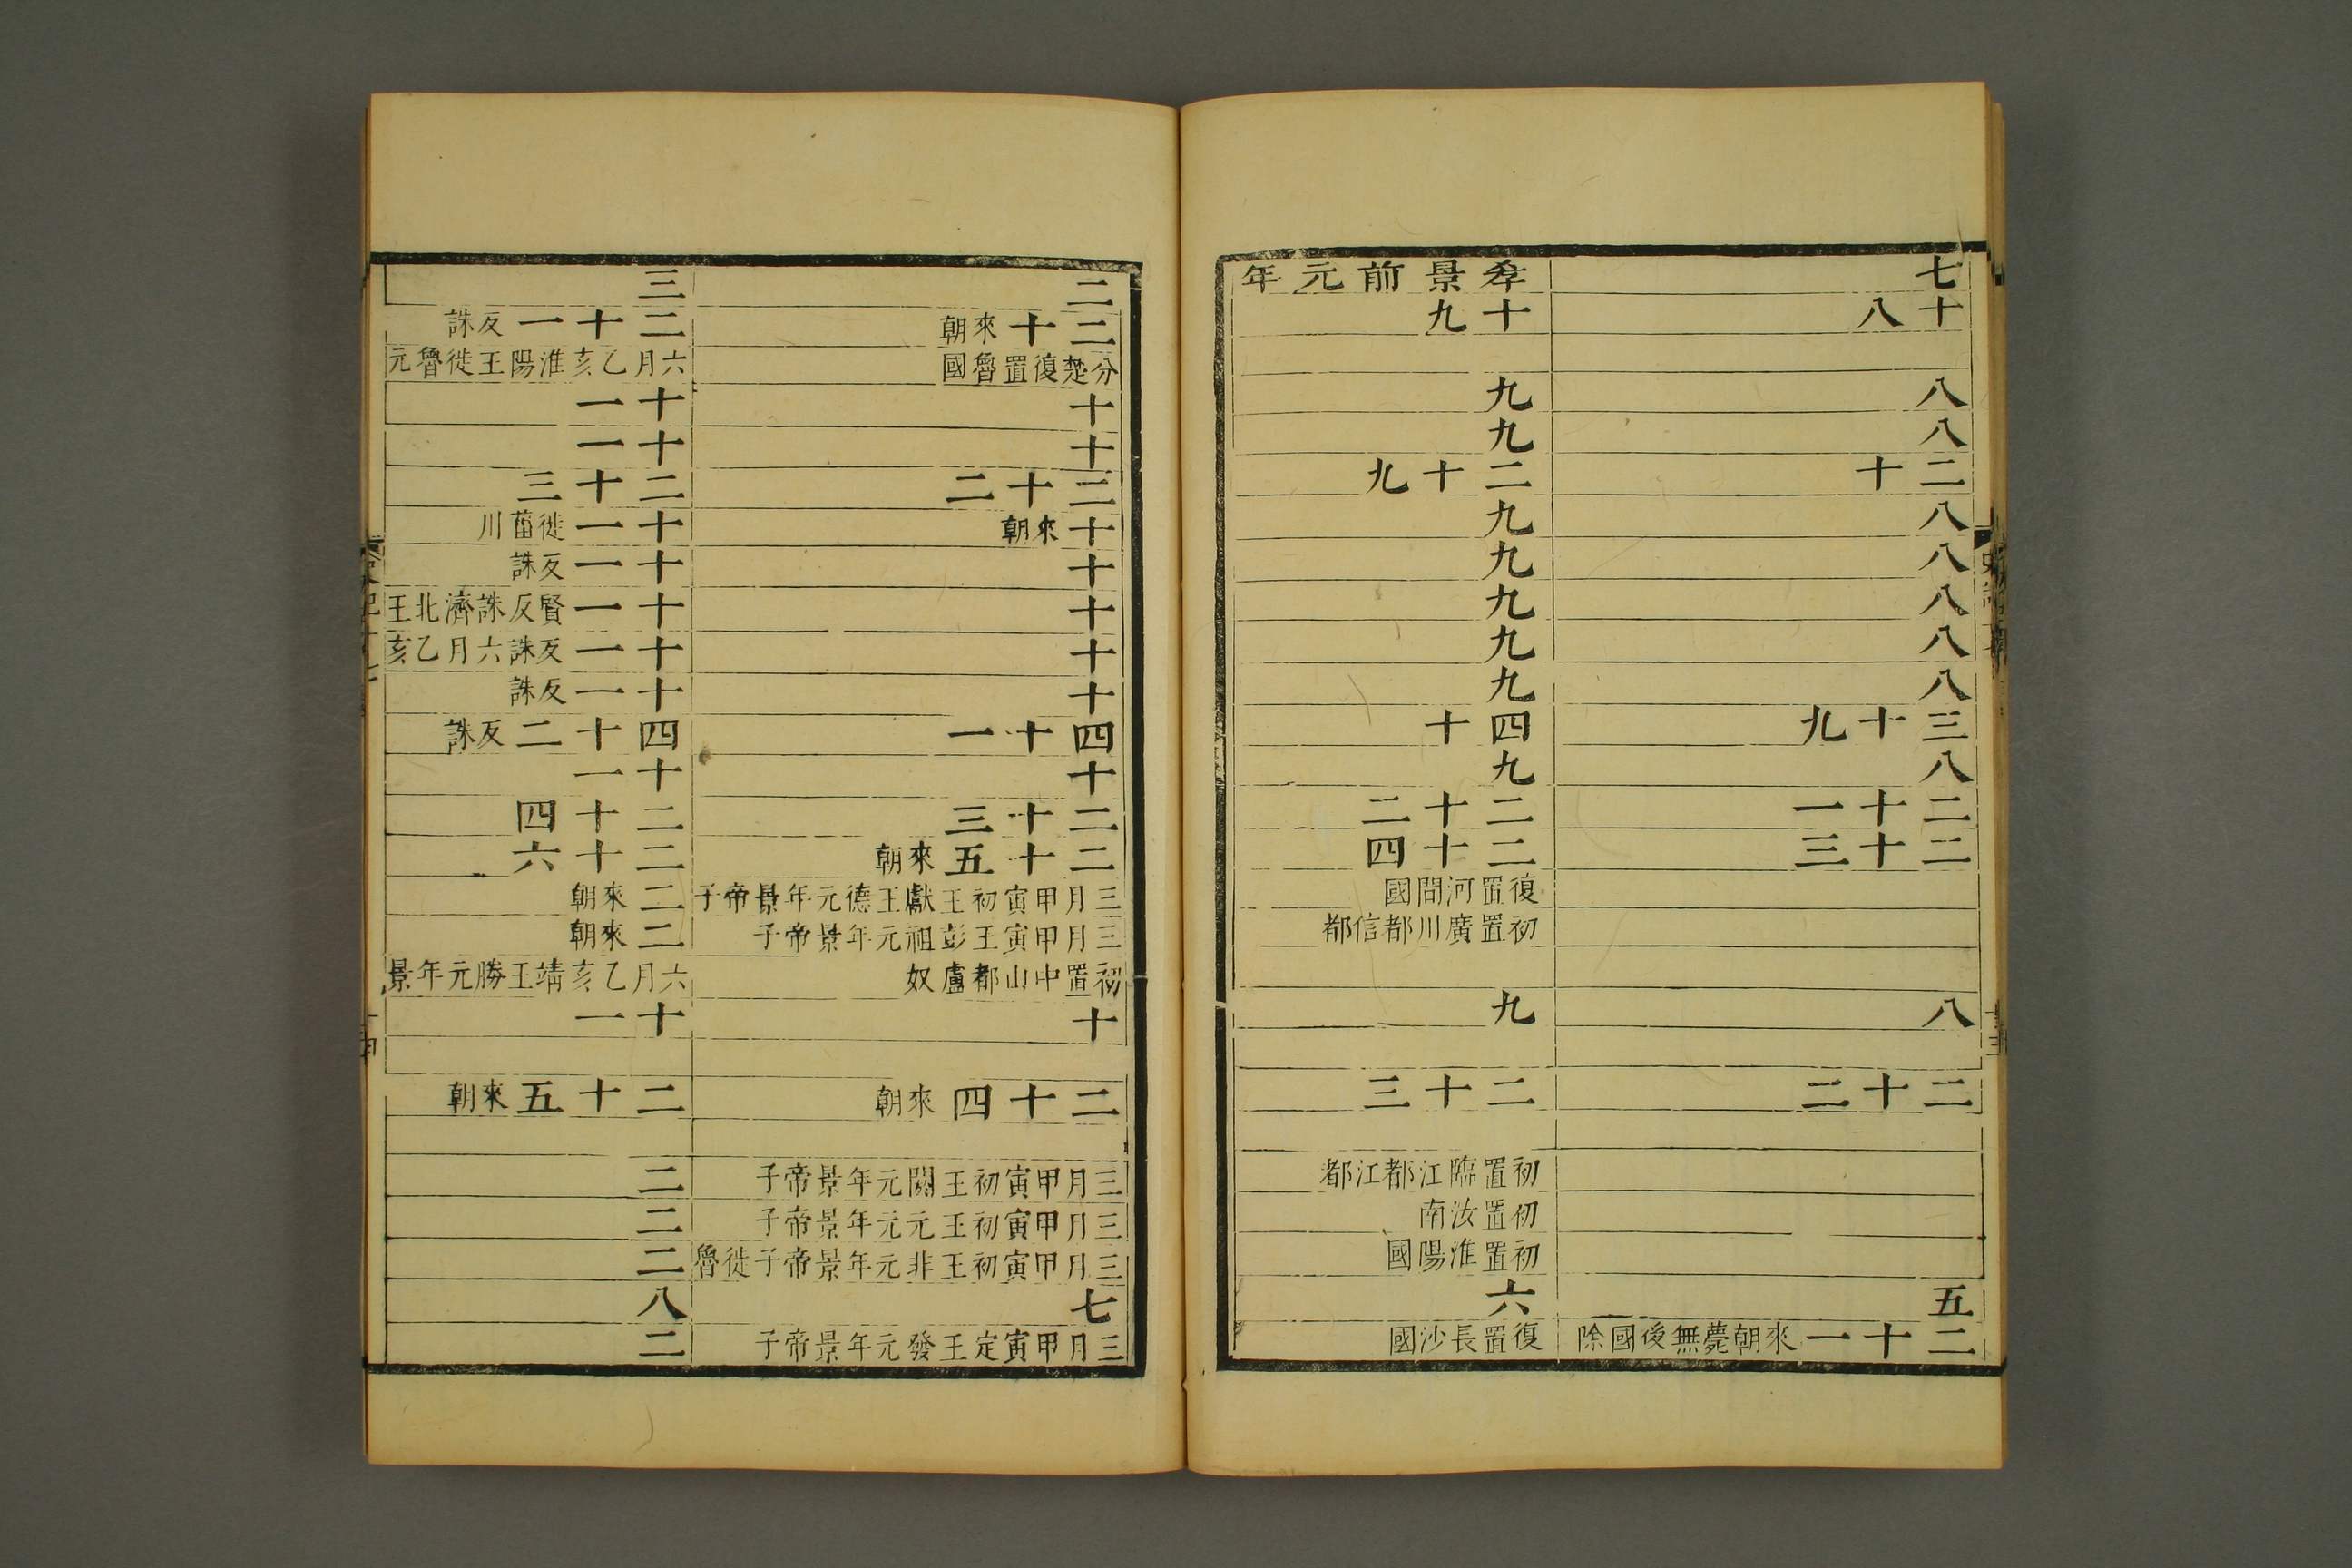 七
十八
八
八
二十
八
八
八
八
八
三十九
八
二十一
二十三
八
二十二
五
二十一來朝薨無後國除
孝景前元年
十九
九
九
二十九
九
九
九
九
九
四十
九
二十二
二十四
復置河間國
初置廣川都信都
九
二十三
初置臨江都江都
初置汝南
初置淮陽國
六
復置長沙國
二
二十來朝
分楚復置魯國
十
十
二十二
十來朝
十
十
十
十
四十一
十
二十三
二十五來朝
三月甲寅初王獻王德元年景帝子
三月甲寅王彭祖元年景帝子
初置中山都盧奴
十
二十四來朝
三月甲寅初王閼元年景帝子
三月甲寅初王元元年景帝子
三月甲寅初王非元年景帝子徙魯
七
三月甲寅定王發元年景帝子
三
二十一反誅
六月乙亥淮陽王徙魯元
十一
十一
二十三
十一徙菑川
十一反誅
十一賢反誅濟北王
十一反誅六月乙亥
十一反誅
四十二反誅
十一
二十四
二十六
二來朝
二來朝
六月乙亥靖王勝元年景
十一
二十五來朝
二
二
二
八
二